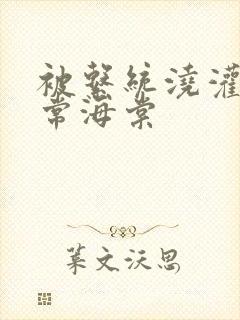 被繫統澆灌
常海棠
葉文沃思